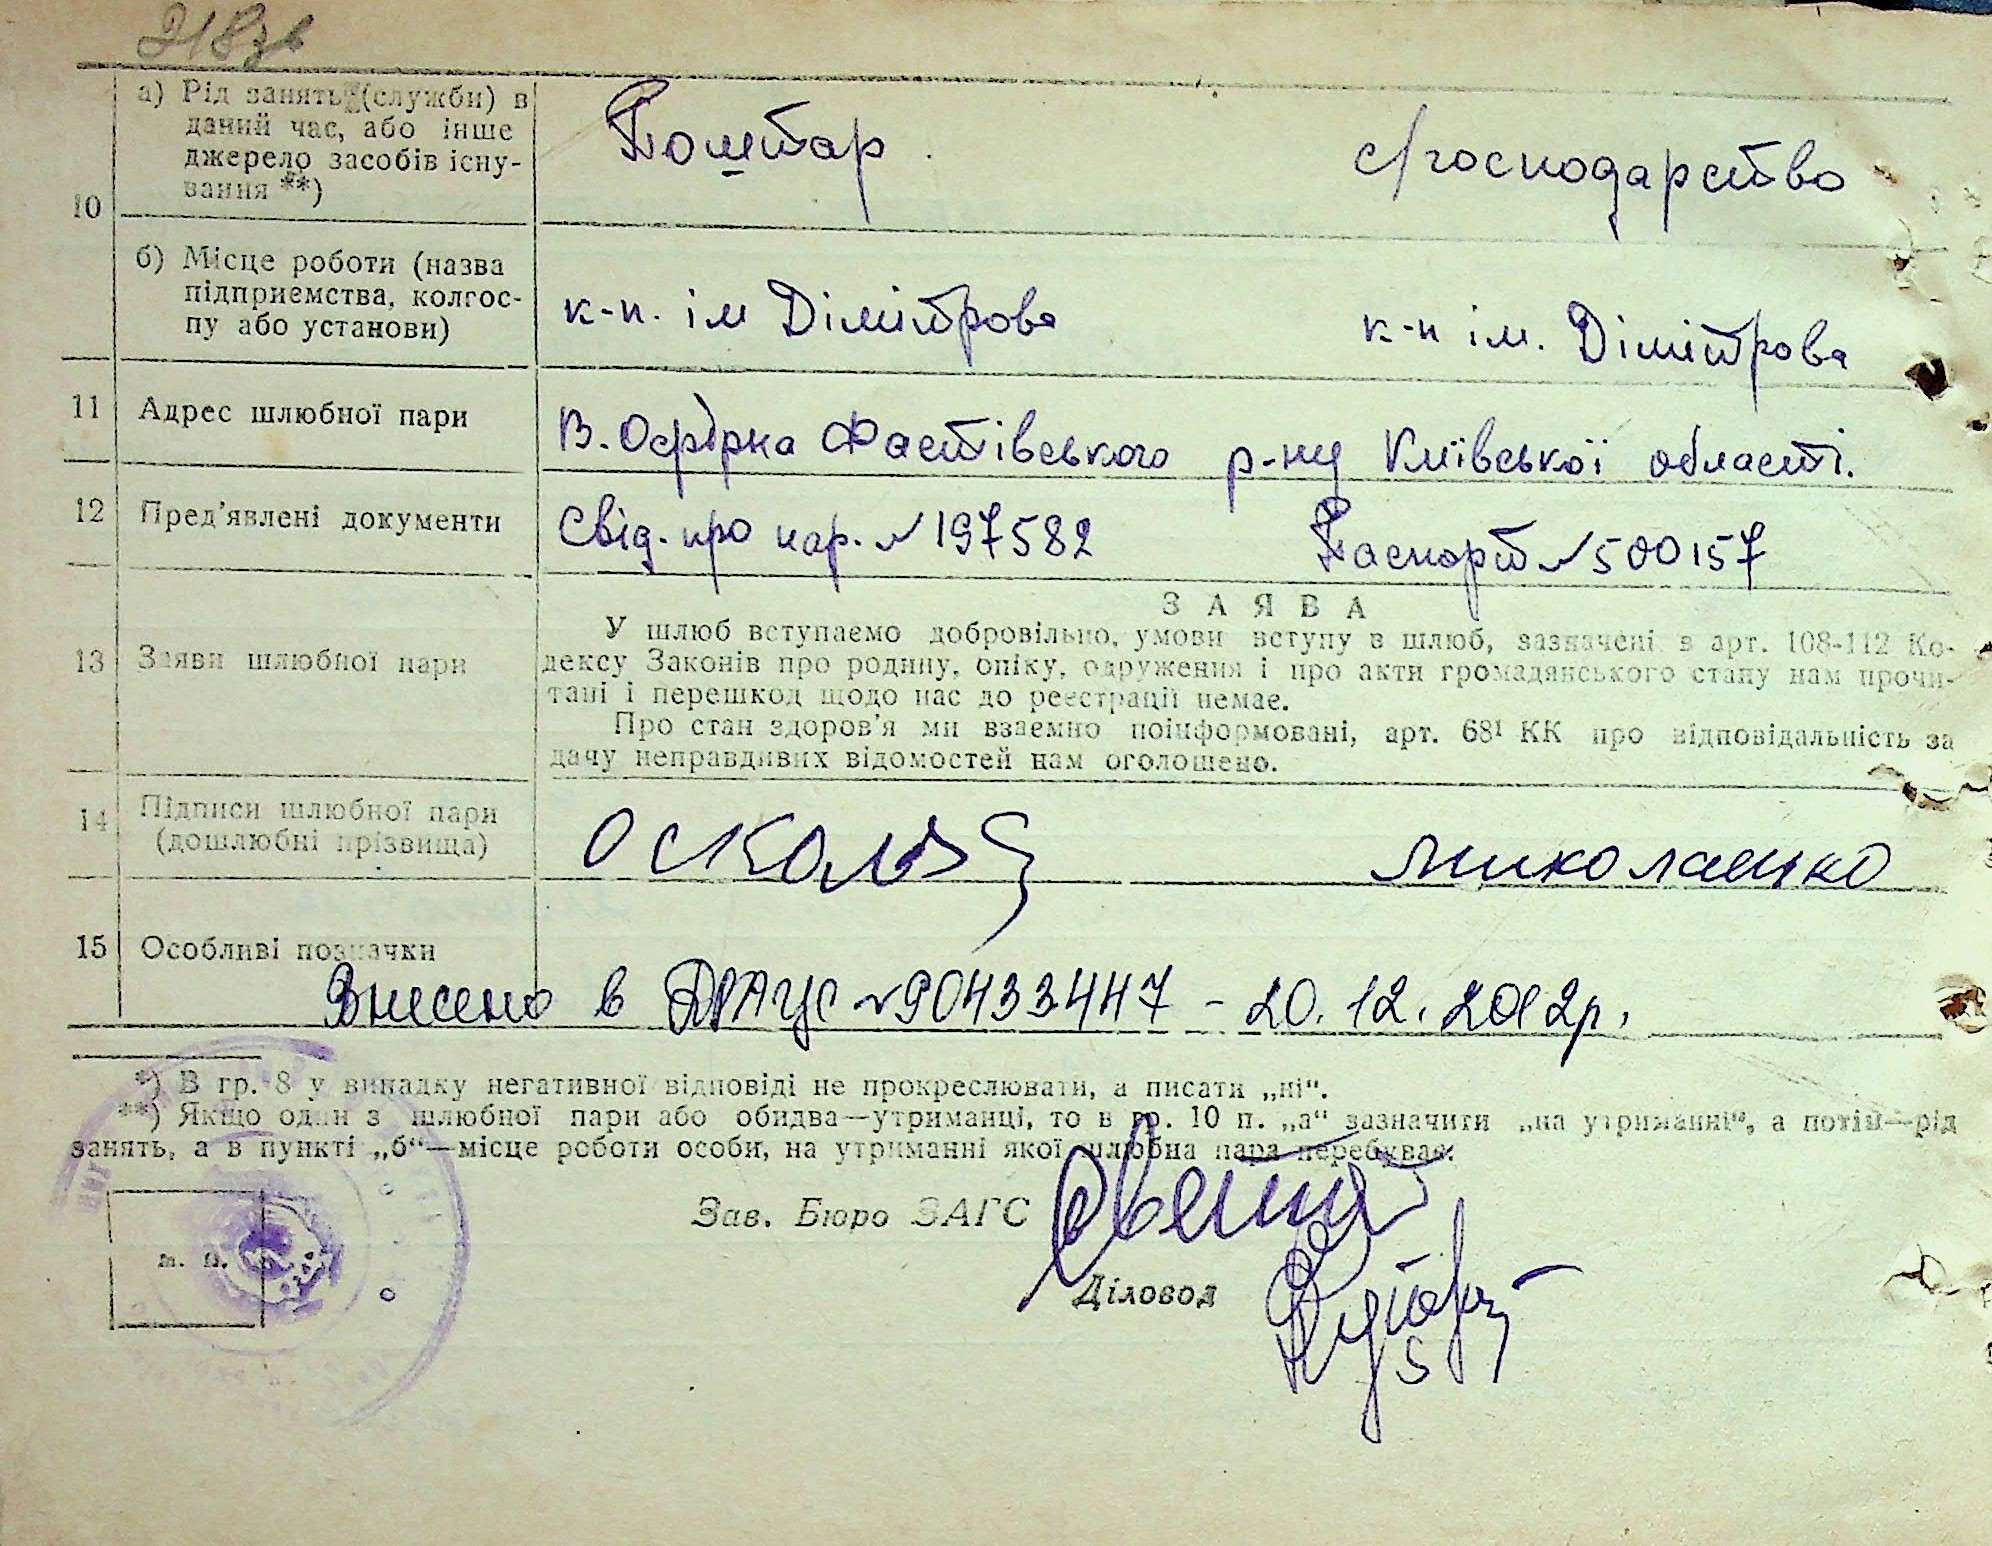 218зв
а) Рід занять (служби) в
даний час, або інше
джерело засобів існу-
вання **)
10
Поштар.
с/господарство
б) Місце роботи (назва
підприємства, колгос-
пу або установи)
к-п. ім Дімітрова
к-п ім. Дімітрова
11 Адрес шлюбної пари
В. Офірна Фастівського р-ну Київської області.
12 Пред'явлені документи
Свід. про нар. № 197582
Паспорт № 500157
ЗАЯВА
13 Заяви шлюбної пари
У шлюб вступаємо добровільно, умови вступу в шлюб, зазначені в арт. 108-112 Ко-
дексу Законів про родину, опіку, одруження і про акти громадянського стану нам прочи-
тані і перешкод щодо нас до реєстрації немає.
Про стан здоров'я ми взаємно поінформовані, арт. 68¹ КК про відповідальність за
дачу неправдивих відомостей нам оголошено.
14 Підписи шлюбної пари
(дошлюбні прізвища)
Миколаенко
15 Особливі позначки
Внесено в ДРАЦС № 90433447 - 20.12.2012р.
*) В гр. 8 у випадку негативної відповіді не прокреслювати, а писати „ні“.
**) Якщо один з шлюбної пари або обидва—утриманці, то в гр. 10 п. „а“ зазначити „на утриманні“, а потім—рід
занять, а в пункті „б“—місце роботи особи, на утриманні якої шлюбна пара перебуває.
Зав. Бюро ЗАГС
м. п.
Діловод